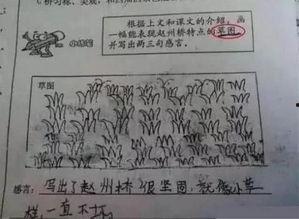 根据上文和课文的介绍，画
一幅能表现赵州桥特点的草图，
并写出两三句感言。
小练笔
草图
感言：写出了赵州桥很坚固，就像小草
一样，一直不坏。